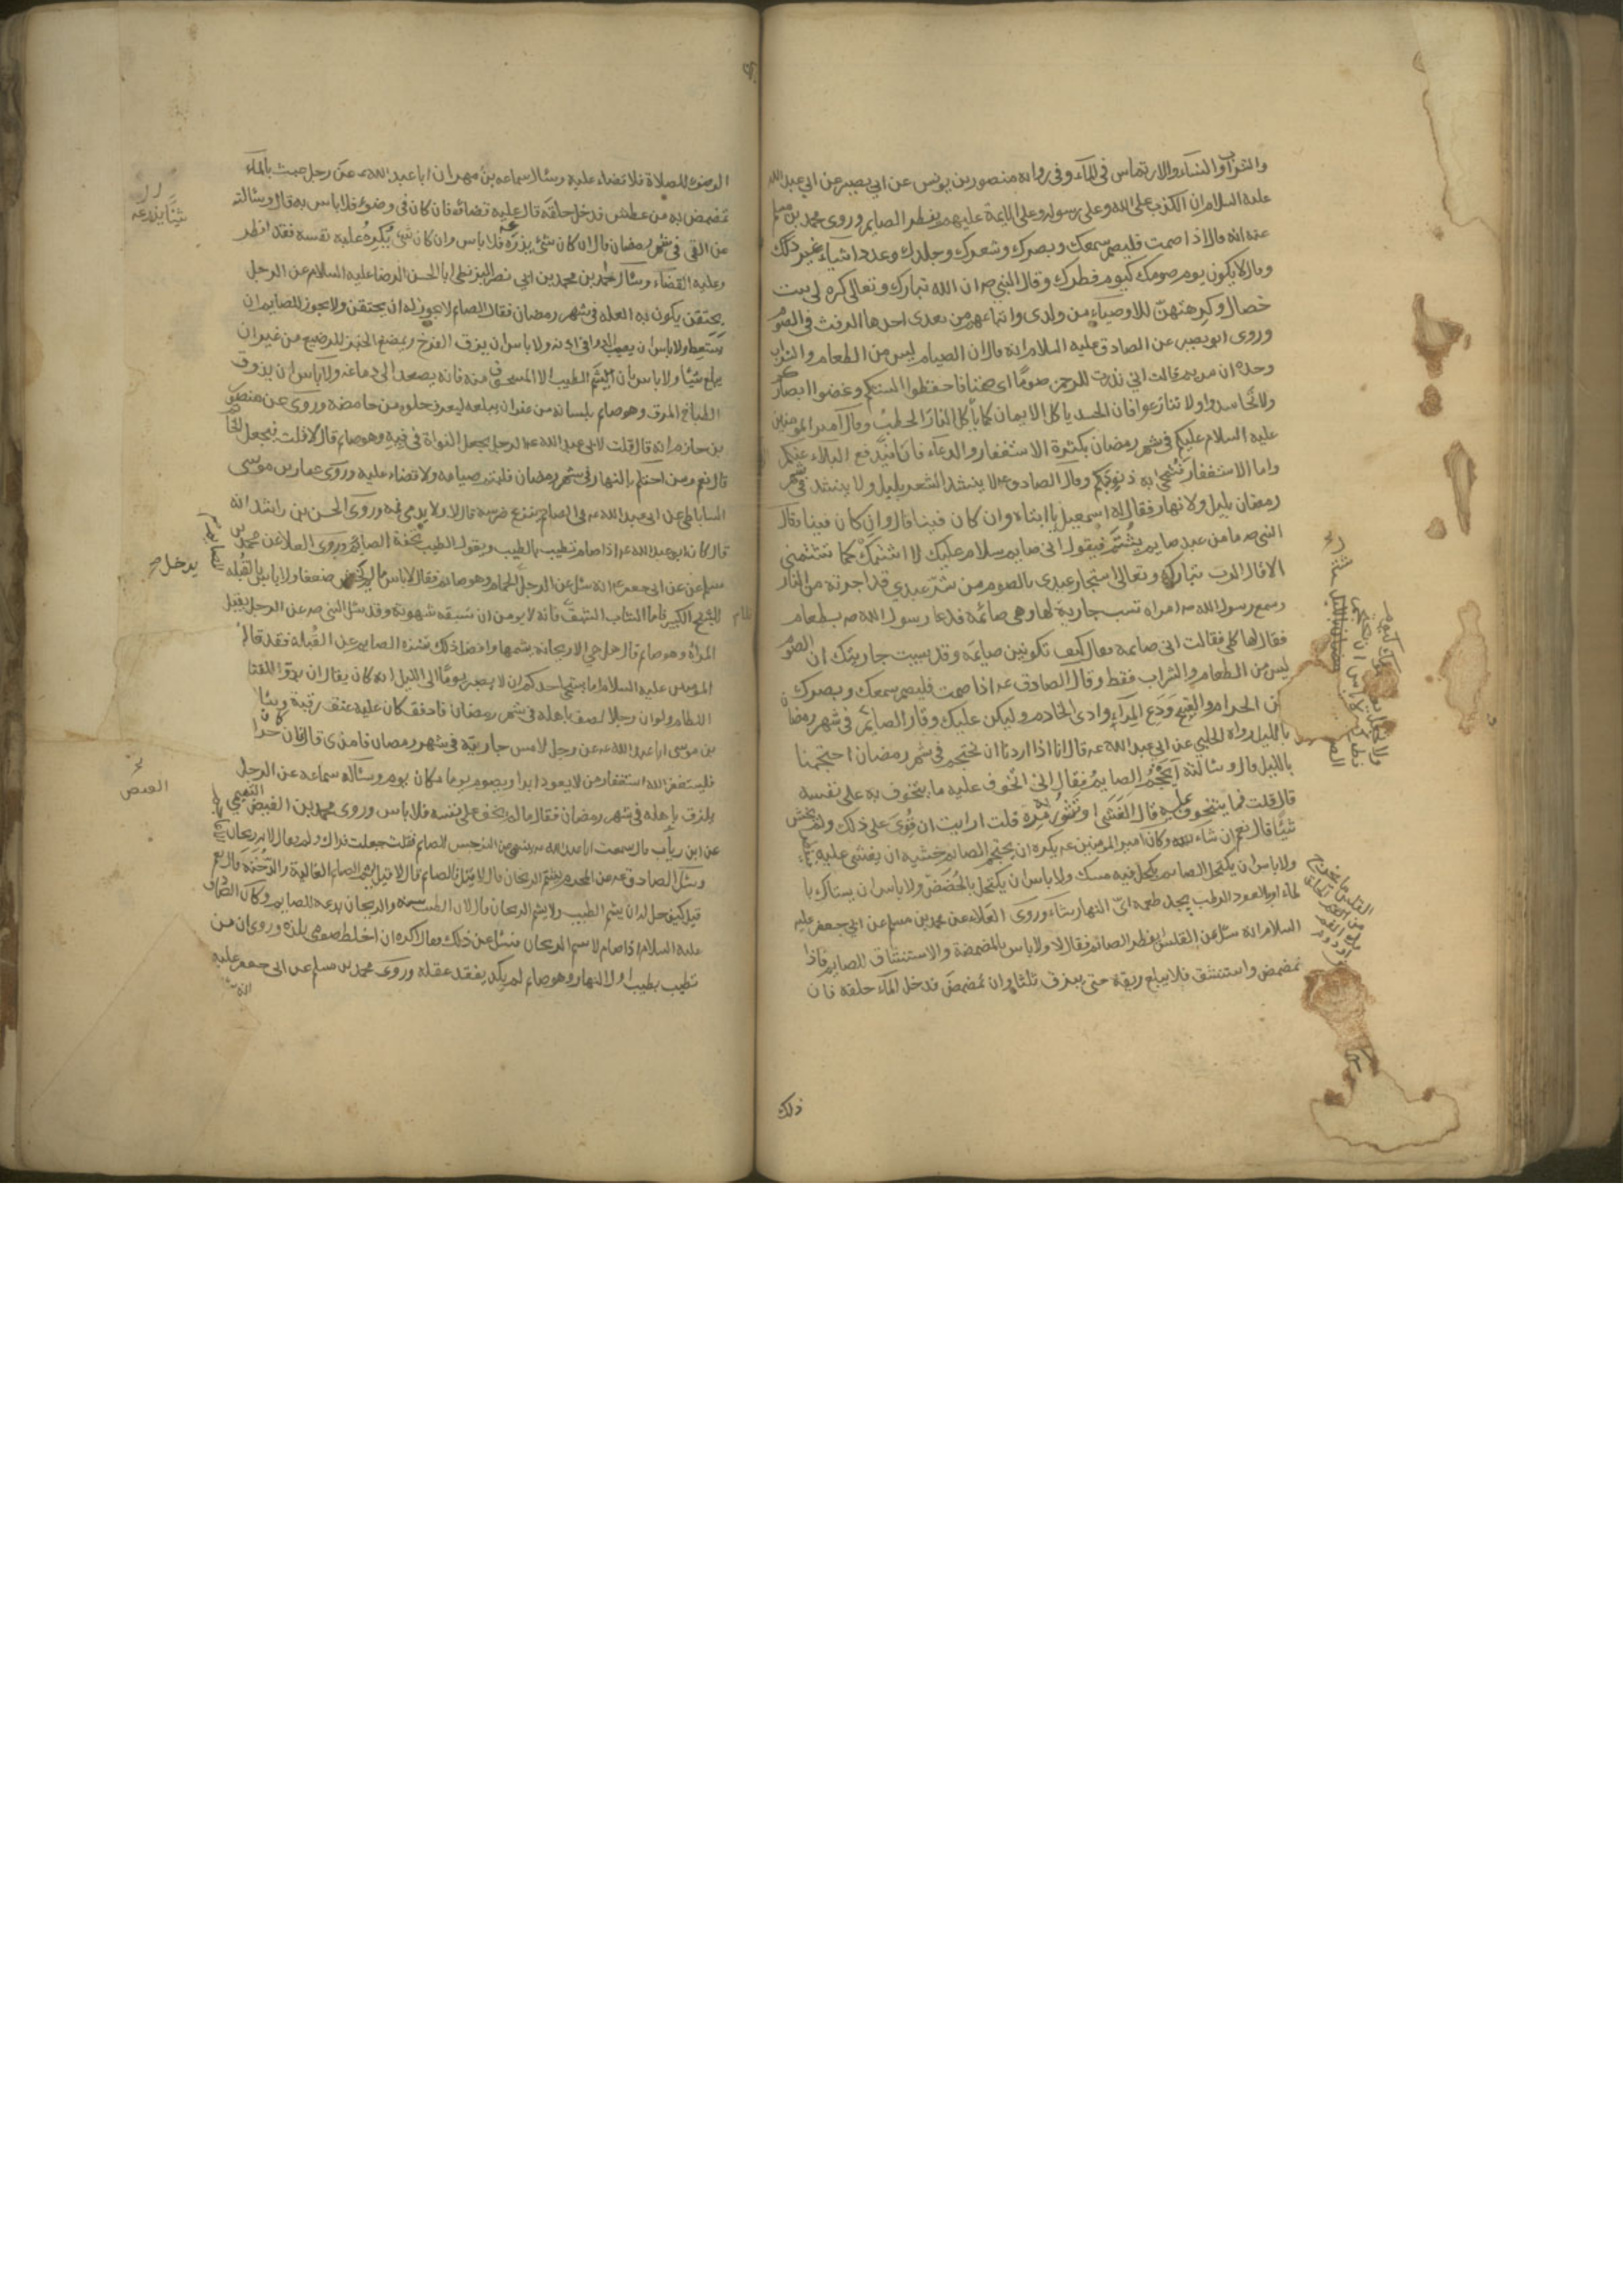 والشراب والنساء والارتماس في الماء وفي رواية منصور بن يونس عن ابي بصير عن ابي عبد الله
عليه السلام ان الكذب على الله وعلى رسوله وعلى الائمة عليهم يفطر الصايم وروى محمد بن مسلم
عنه انه قال اذا صمت فليصم سمعك وبصرك وشعرك وجلدك وعدد اشياء غير ذلك
وقال لا يكون يوم صومك كيوم فطرك وقال النبي ص ان الله تبارك وتعالى كره لي ست
خصال وكرهتهن للاوصياء من ولدي واتباعهم من بعدي احدها الرفث في الصوم
وروى ابو بصير عن الصادق عليه السلام انه قال ان الصيام ليس من الطعام والشراب
وحده ان مريم قالت اني نذرت للرحمن صوما اي صمتا فاحفظوا السنتكم وغضوا ابصاركم
ولا تحاسدوا ولا تنازعوا فان الحسد ياكل الايمان كما ياكل النار الحطب وقال امير المومنين
عليه السلام عليكم في شهر رمضان بكثرة الاستغفار والدعاء فاما فيدفع البلاء عنكم
واما الاستغفار فتمحى به ذنوبكم وقال الصادق ع لا ينشد الشعر بليل ولا ينشد في شهر
رمضان بليل ولا نهار فقال له اسمعيل يا ابتاه وان كان فينا قال وان كان فينا وقال
النبي ص ما من عبد صايم يشتم فيقول اني صايم سلام عليك لا اشتمك كما تشتمني
الا قال الرب تبارك وتعالى استجار عبدي بالصوم من شر عبدي قد اجرته من النار
وسمع رسول الله ص امراة تسب جارية لها وهي صائمة فدعا رسول الله ص بطعام
فقال لها كلي فقالت اني صايمة فقال كيف تكونين صايمة وقد سببت جاريتك ان الصوم
ليس من الطعام والشراب فقط وقال الصادق ع اذا صمت فليصم سمعك وبصرك
من الحرام والقبيح ودع المراء واذى الخادم وليكن عليك وقار الصائم في شهر رمضان
بالليل رواه الحلبي عن ابي عبد الله ع قال انا اذا اردنا ان نحتجم في شهر رمضان احتجمنا
بالليل قال وسالته ايحتجم الصايم فقال اني اتخوف عليه ما يتخوف به على نفسه
قال قلت فما يتخوف عليه قال الغشى او تثور به مرة قلت ارايت ان قوي على ذلك ولم يخش
شيئا قال نعم ان شاء الله وكان امير المؤمنين ع يكره ان يحتجم الصايم خشية ان يغشى عليه
ولا باس ان يكتحل الصايم بكحل فيه مسك ولا باس ان يكتحل بالحضض ولا باس ان يستاك با
لماء او بالعود الرطب يجد طعمه اي النهار شاء وروى العلاء عن محمد بن مسلم عن ابي جعفر عليه
السلام انه سئل عن القلس ايفطر الصائم فقال لا ولا باس بالمضمضة والاستنشاق للصايم فاذا
تمضمض واستنشق فلا يبلع ريقه حتى يبزق ثلثا وان تمضمض فدخل الماء حلقه فان
ذلك
الوضوء للصلاة فلا قضاء عليه وسال سماعه بن مهران ابا عبد الله ع عن رجل عبث بالماء
تمضمض به من عطش فدخل حلقه قال عليه قضائه فان كان في وضوء فلا باس به قال وسالته
عن القي في شهر رمضان قال ان كان شئ يذرعه فلا باس وان كان شئ يكره عليه نفسه فقد افطر
وعليه القضاء وسال احمد بن محمد بن ابي نصر البزنطي ابا الحسن الرضا عليه السلام عن الرجل
يحتقن يكون به العله في شهر رمضان فقال الصائم لا يجوز له ان يحتقن ولا يجوز للصايم ان
يستعط ولا باس ان يصب الدوا في اذنه ولا باس ان يزق الفرخ ويمضغ الخبز للرضيع من غير ان
يبلع شيئا ولا باس بان يشم الطيب الا المسحوق منه فانه يصعد الى دماغه ولا باس ان يذوق
الطباخ المرق وهو صايم بلسانه من غير ان يبلعه ليعرف حلوه من حامضه وروى عن منصور
بن حازم انه قال قلت لابي عبد الله ع الرجل يجعل النواة في فيه وهو صايم قال لا قلت فيجعل الخاتم
قال نعم ومن احتلم بالنهار في شهر رمضان فليتم صيامه ولا قضاء عليه وروى عمار بن موسى
الساباطي عن ابي عبد الله ع في الصايم ينزع ضرسه قال لا ولا يدمي فمه وروى الحسن بن راشد انه
قال كان ابو عبد الله ع اذا صام تطيب بالطيب ويقول الطيب تحفة الصايم وروى العلا عن محمد بن
مسلم عن ابي جعفر ع انه سئل عن الرجل الحمام وهو صايم فقال لا باس ما لم يخش ضعفا ولا باس بالقبله
للشيخ الكبير فاما الشاب الشبق فانه لا يومن ان تسبقه شهوته وقد سئل النبي ص عن الرجل يقبل
المراة وهو صايم قال هل هي الا ريحانة يشمها وافضل ذلك تنزه الصايم عن القبله فقد قال امير
المؤمنين عليه السلام اما يستحي احدكم ان لا يصبر يوما الى الليل انه كان يقال ان بدو القتال
اللطام ولو ان رجلا لصق باهله في شهر رمضان فادفق كان عليه عتق رقبة
بن موسى ابا عبد الله ع عن رجل لامس جاريته في شهر رمضان فامذى قال ان كان حراما
فليستغفر الله استغفار من لا يعود ابدا ويصوم يوما مكان يوم وساله سماعه عن الرجل
يلزق باهله في شهر رمضان فقال ما لم يخف على نفسه فلا باس وروى محمد بن الفيض التيمي
عن ابن رياب قال سمعت ابا عبد الله ع ينهى عن النرجس للصايم فقلت جعلت فداك ولم قال لانه ريحان
وسئل الصادق ع عن المحرم يشم الريحان قال لا قيل فالصايم قال لا قيل يشم الصايم الغالية والدخنة قال نعم
قيل كيف حل له ان يشم الطيب ولا يشم الريحان قال لان الطيب سنة والريحان بدعه للصايم وكان الصادق
عليه السلام اذا صام لا يشم الريحان فسئل عن ذلك فقال اكره ان اخلط صومي بلذه وروي ان من
تطيب بطيب اول النهار وهو صايم لم يكد يفقد عقله وروى محمد بن مسلم عن ابي جعفر عليه
يدخل